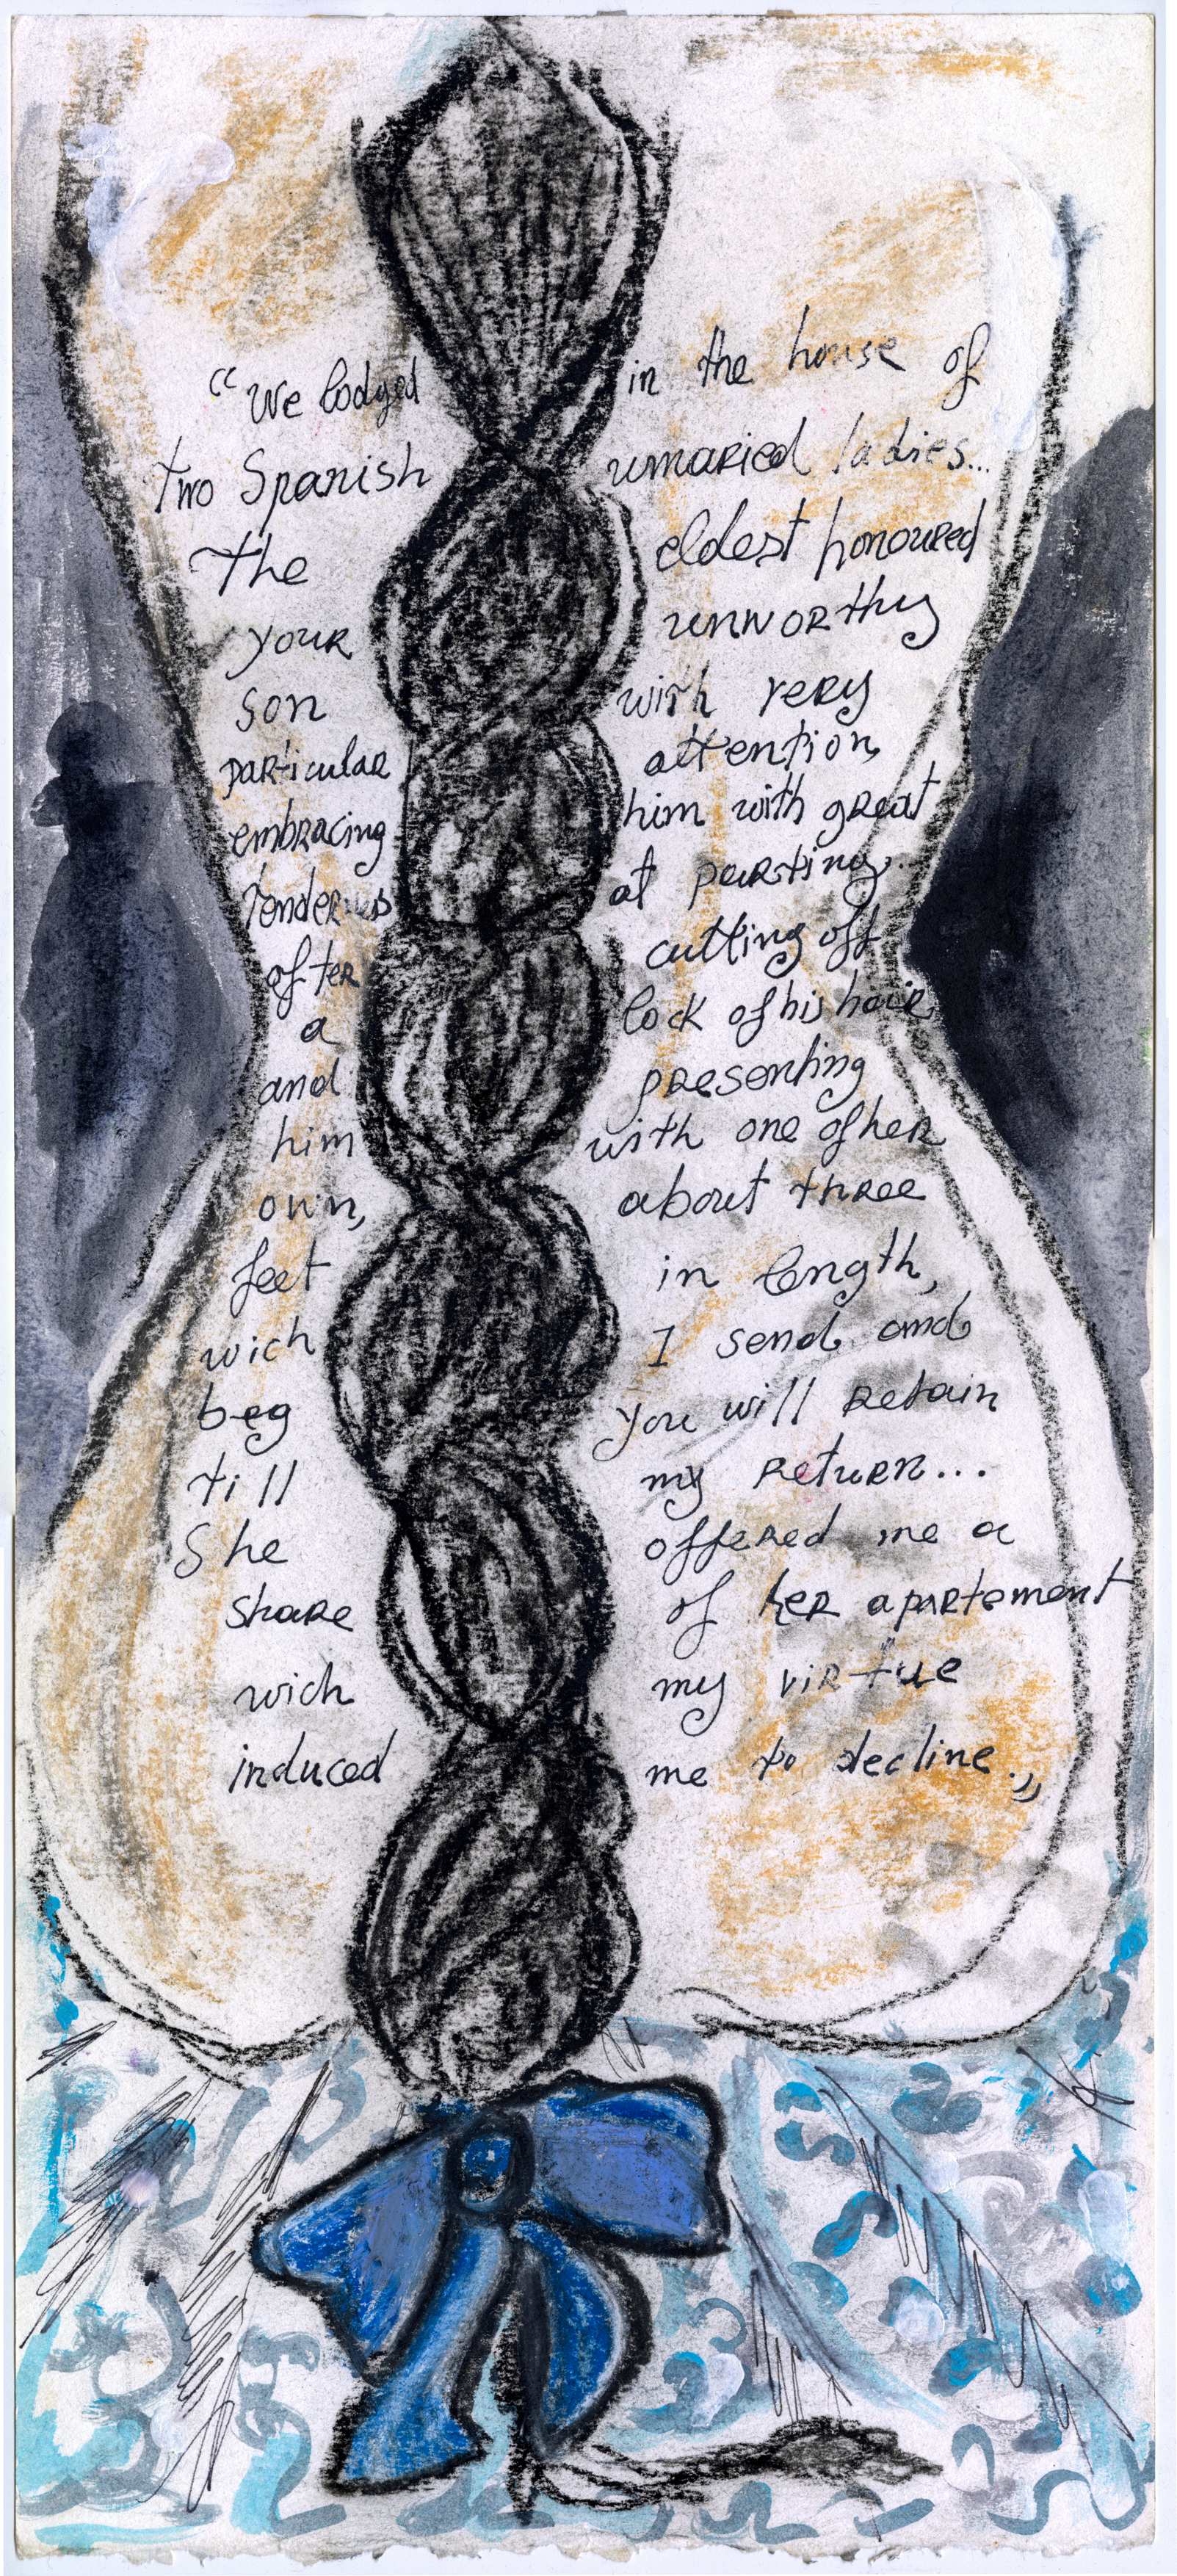 “We lodged in the house of
two Spanish unmaried ladies...
The eldest honoured
your unworthy
son with very
particular attention
embracing him with great
tenderness at parting..
after cutting off
a lock of his hair
and presenting
him with one of her
own, about three
feet in length,
wich I send and
beg you will retain
till my return...
She offered me a
share of her apartement
wich my virtue
induced me to decline.„